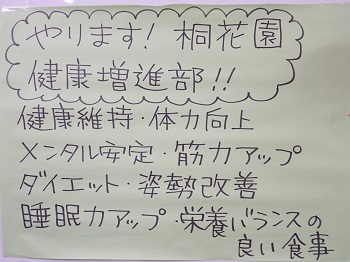 やります! 桐花園
健康増進部!!
健康維持・体力向上
メンタル安定・筋力アップ
ダイエット・姿勢改善
睡眠力アップ・栄養バランスの
良い食事